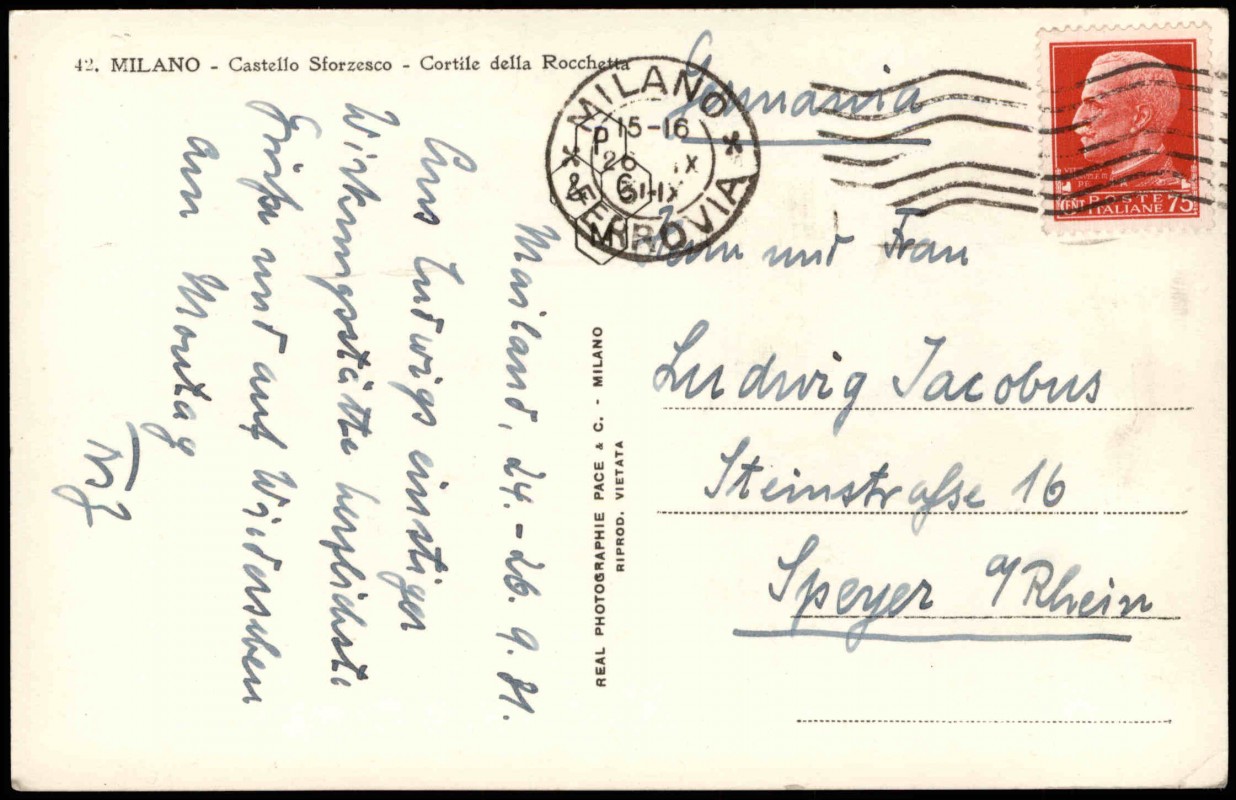 42. MILANO - Castello Sforzesco - Cortile della Rocchetta
Mailand, 24.-26. 9. 31.
Aus Ludwigs einstiger
Wirkungsstätte herzlichste
Grüße und auf Wiedersehen
am Montag
REAL PHOTOGRAPHIE PACE & C. - MILANO
RIPROD. VIETATA
MILANO
15-16
26 IX
FERROVIA
P & C M
POSTE
ITALIANE
CENT 75
Germania
Herrn und Frau
Ludwig Jacobus
Steinstraße 16
Speyer a/Rhein